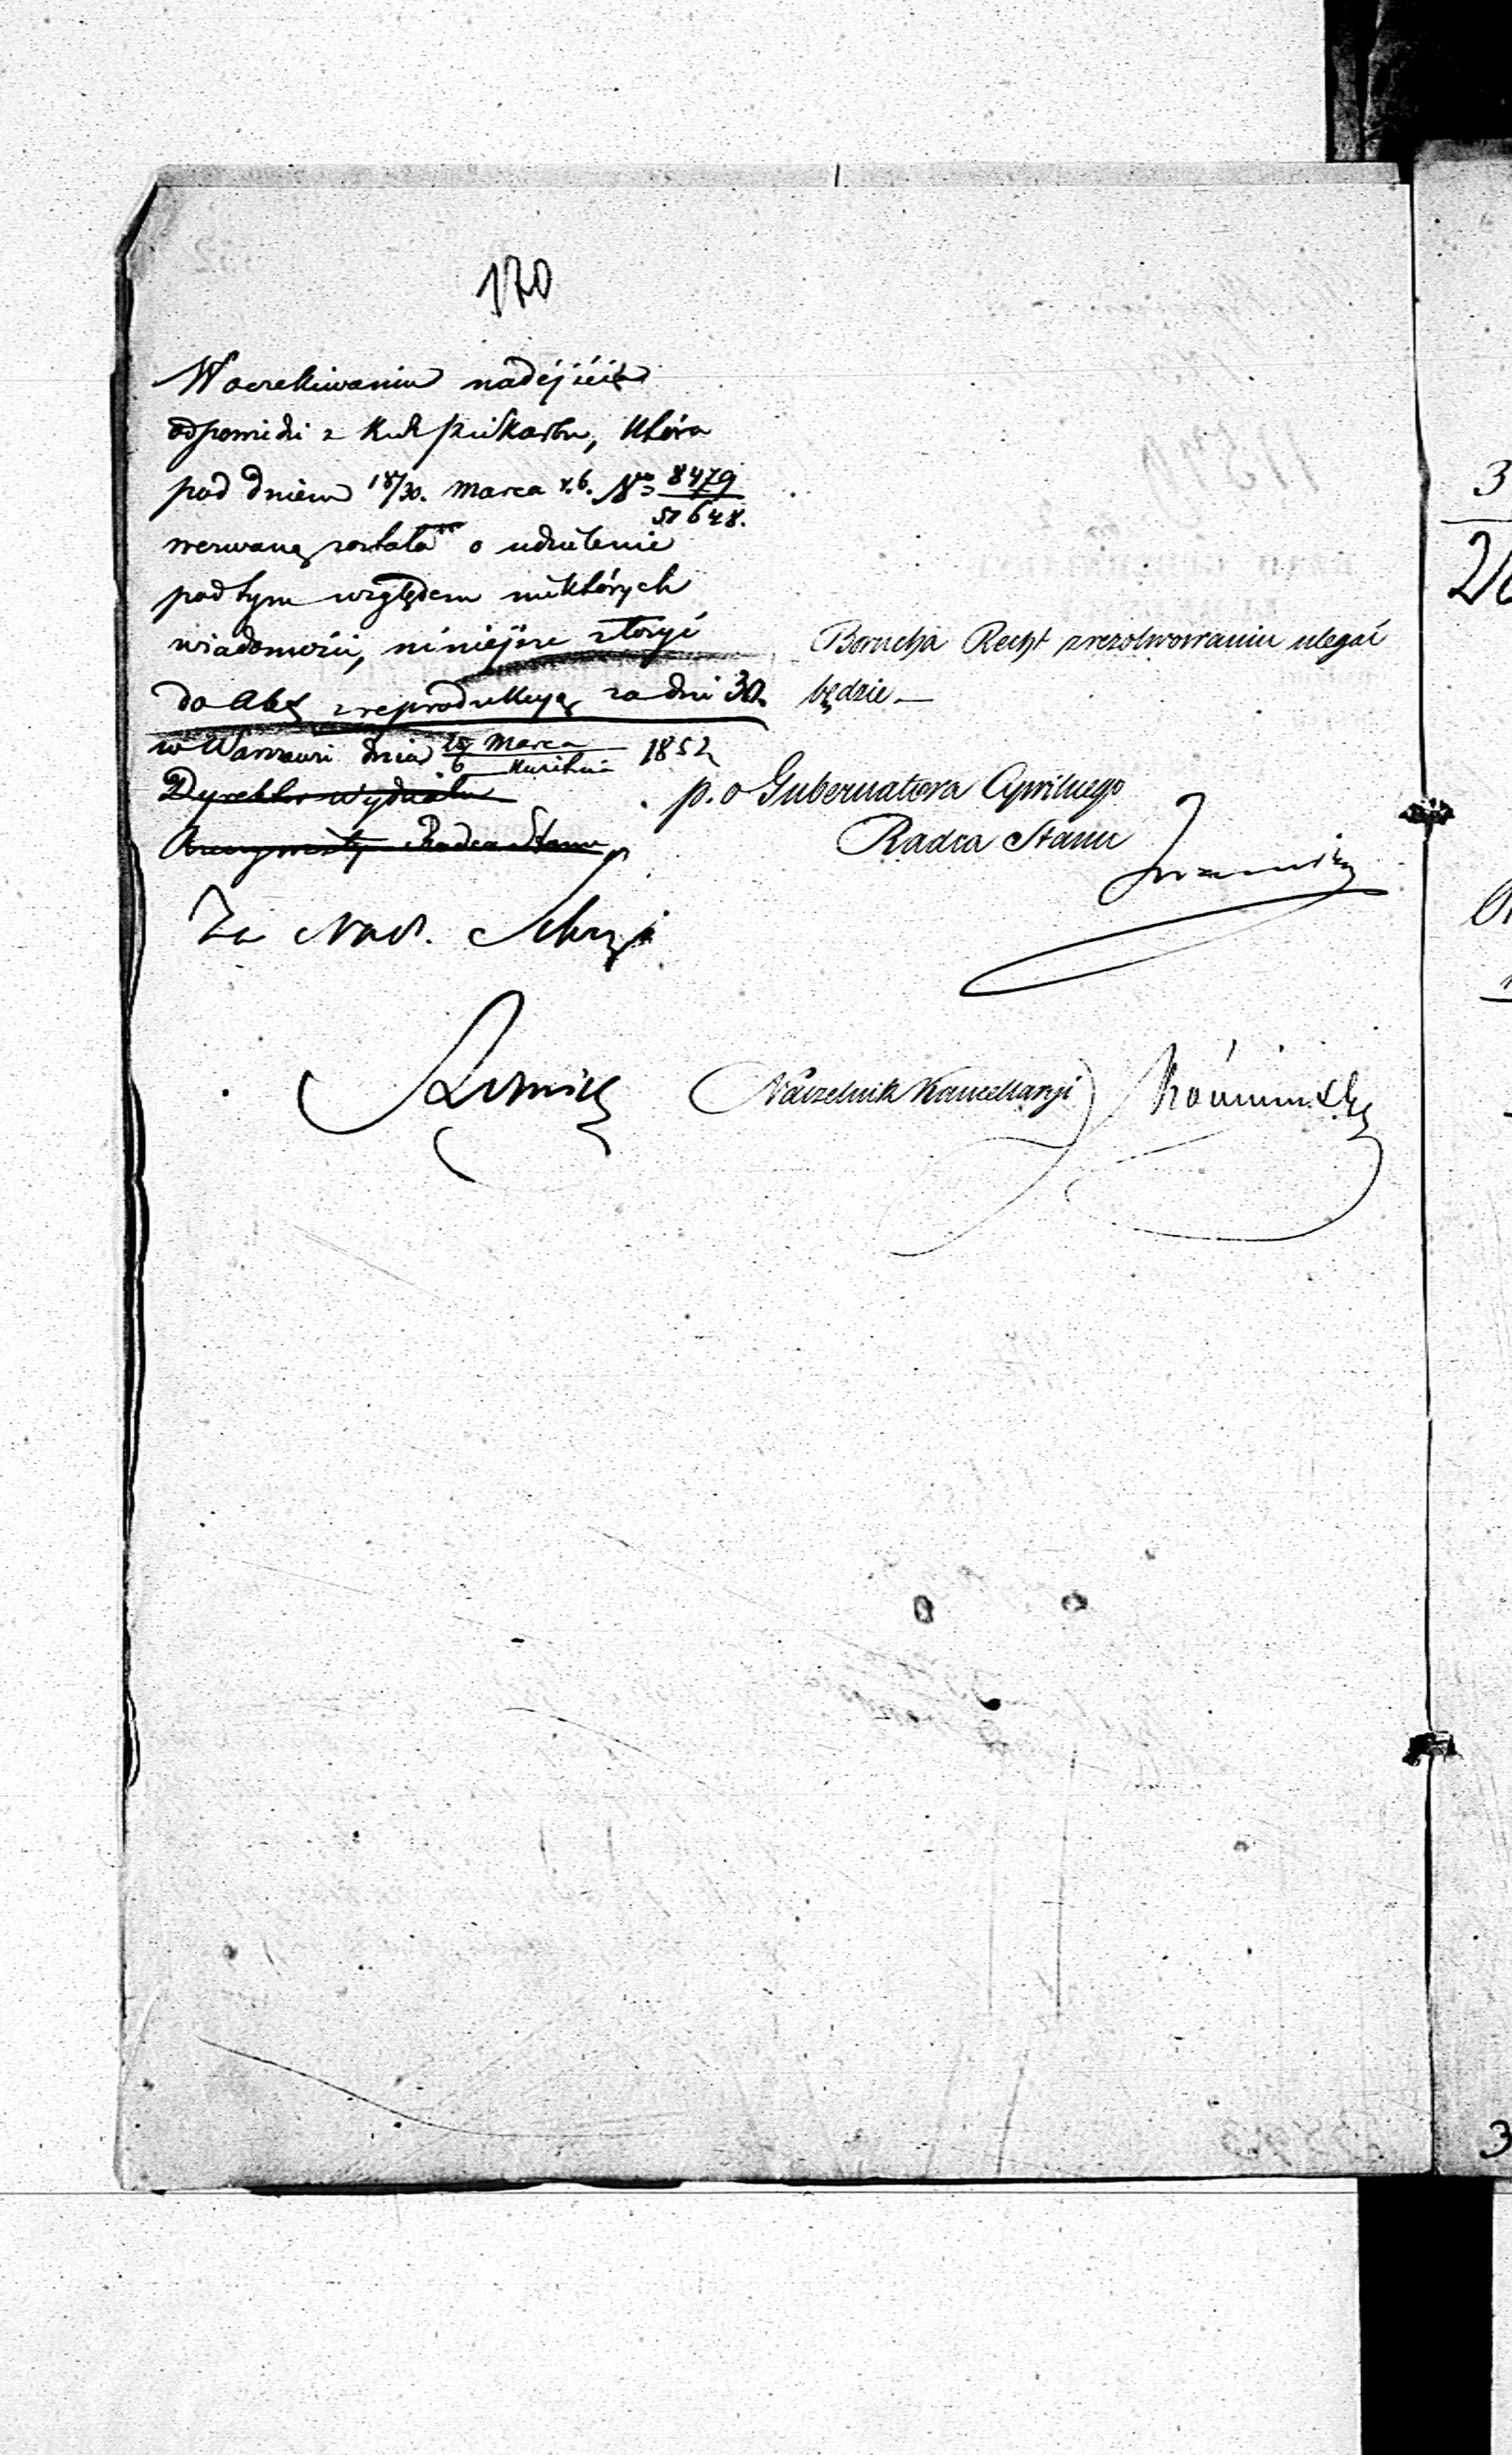 170
W oczekiwaniu nadejścia
odpowiedzi z
pod dniem 18/30. Marca r.b. No 8479
51648.
wezwaną została o udzielenie
pod tym względem niektórych
wiadomości, niniejsze złożyć
do akt z reprodukcyą za dni 30.
w Warszawie dnia 25 Marca 1852
6 Kwietnia
Dyrektor Wydziału
Rzeczywisty Radca Stanu
Za Nacz. Sekcyi
Borucha Recht zrezolwowaniu ulegać
będzie
p. o Gubernatora Cywilnego
Radca Stanu
Naczelnik Kancellaryi